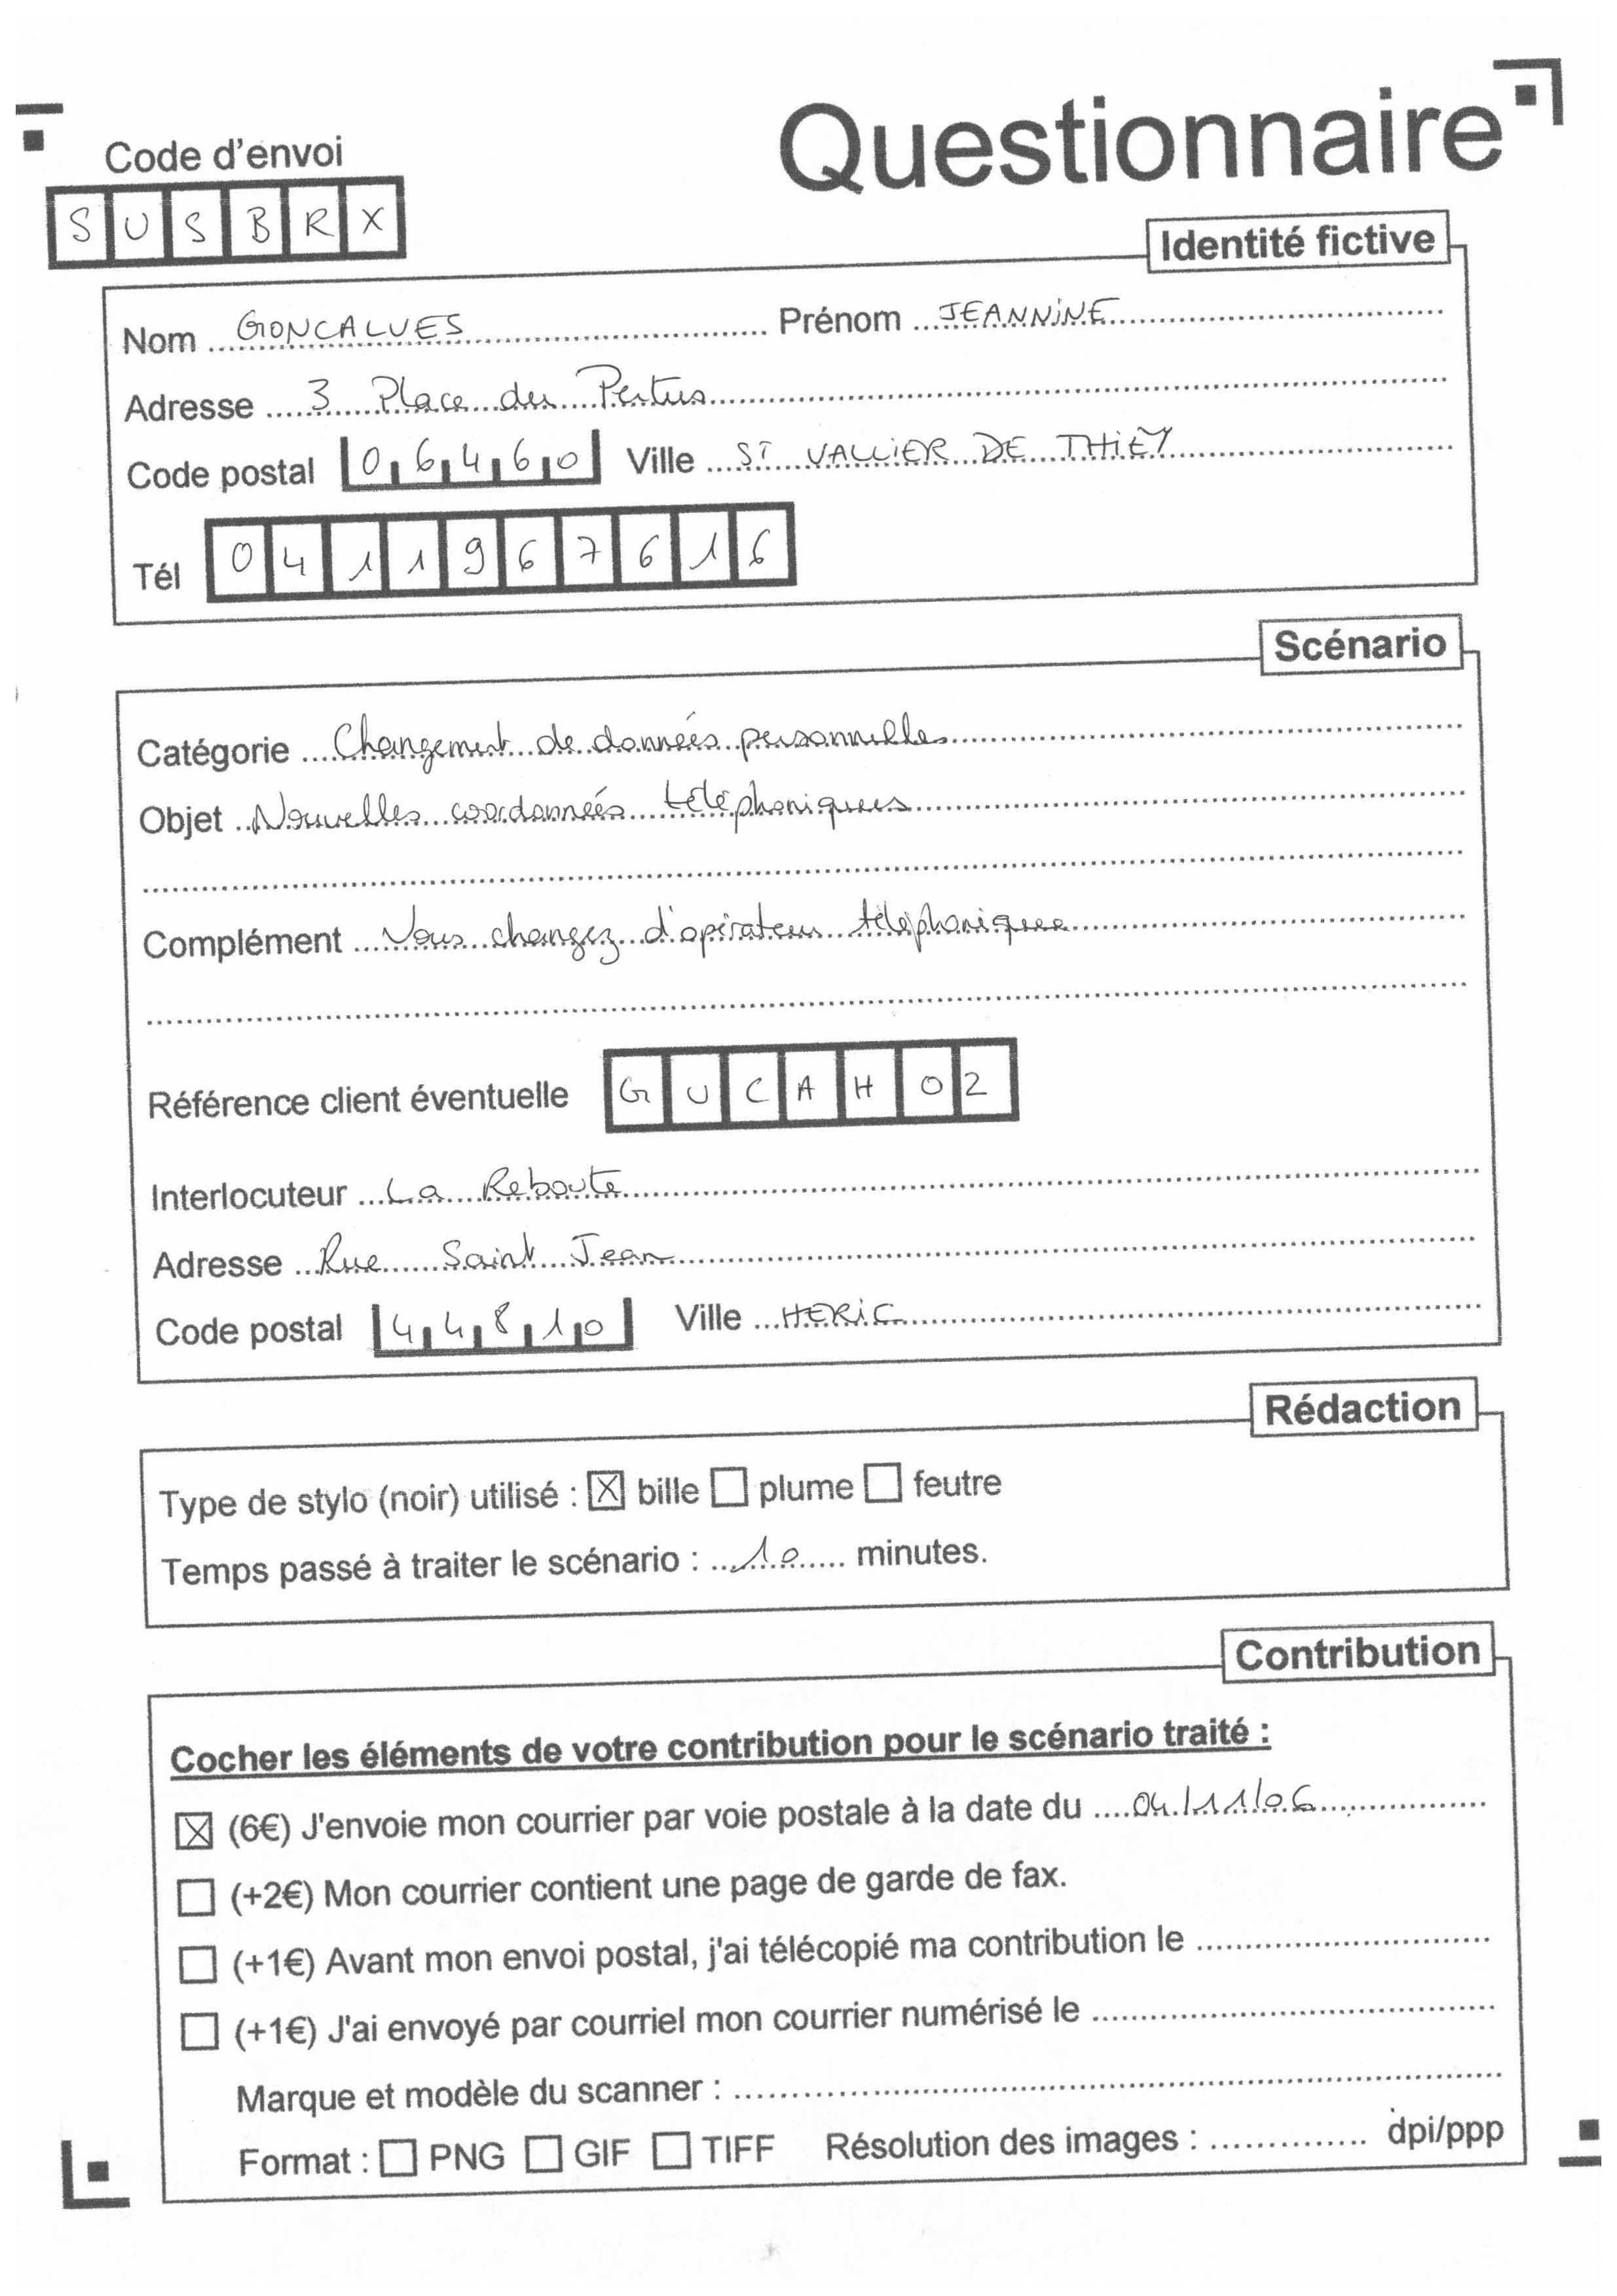 Questionnaire
Code d'envoi
SUSBRX
Identité fictive
Nom GONCALVES Prénom JEANNINE
Adresse 3 Place du Pertus
Code postal 06460 Ville ST VALLIER DE THIEY
Tél 0411967616
Scénario
Catégorie Changement de données personnelles
Objet Nouvelles coordonnées téléphoniques
Complément Vous changez d'opérateur téléphonique
Référence client éventuelle GUCAH02
Interlocuteur La Reboute
Adresse Rue Saint Jean
Code postal 44810 Ville HERIC
Rédaction
Type de stylo (noir) utilisé : X bille plume feutre
Temps passé à traiter le scénario : 10 minutes.
Contribution
Cocher les éléments de votre contribution pour le scénario traité :
X (6€) J'envoie mon courrier par voie postale à la date du 04/11/06
(+2€) Mon courrier contient une page de garde de fax.
(+1€) Avant mon envoi postal, j'ai télécopié ma contribution le
(+1€) J'ai envoyé par courriel mon courrier numérisé le
Marque et modèle du scanner :
Format : PNG GIF TIFF Résolution des images : dpi/ppp